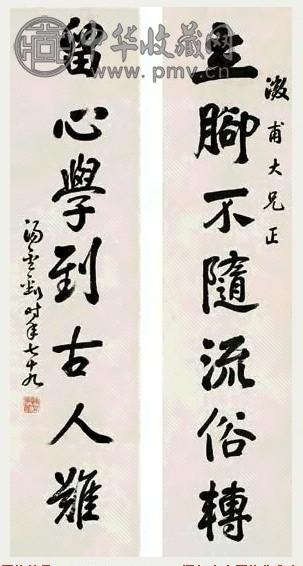 中华收藏网
www.pmv.cn
甫大兄正
立腳不隨流俗轉
留心學到古人難
時年七十九